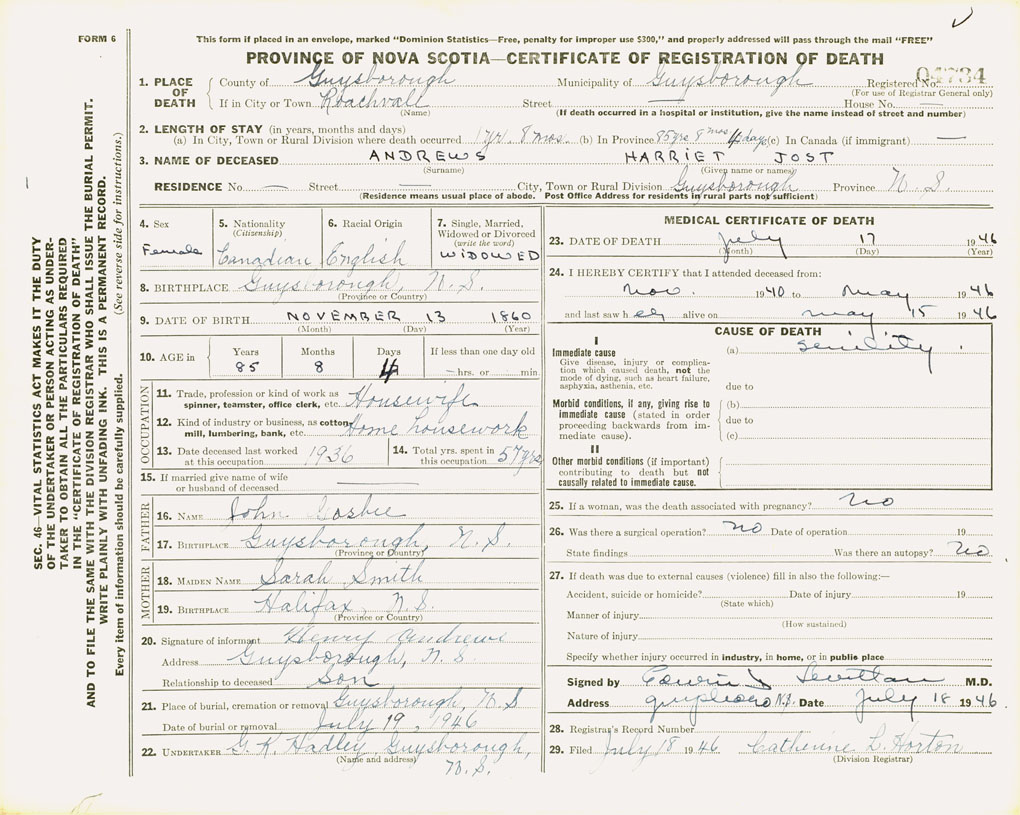 FORM 6
This form if placed in an envelope, marked "Dominion Statistics—Free, penalty for improper use $300," and properly addressed will pass through the mail "FREE"
PROVINCE OF NOVA SCOTIA—CERTIFICATE OF REGISTRATION OF DEATH
SEC. 46—VITAL STATISTICS ACT MAKES IT THE DUTY
OF THE UNDERTAKER OR PERSON ACTING AS UNDER-
TAKER TO OBTAIN ALL THE PARTICULARS REQUIRED
IN THE "CERTIFICATE OF REGISTRATION OF DEATH"
AND TO FILE THE SAME WITH THE DIVISION REGISTRAR WHO SHALL ISSUE THE BURIAL PERMIT.
WRITE PLAINLY WITH UNFADING INK. THIS IS A PERMANENT RECORD.
Every item of information should be carefully supplied. (See reverse side for instructions.)
1. PLACE OF DEATH County of Guysborough Municipality of Guysborough Registered No. 04734
(For use of Registrar General only)
If in City or Town Roachvale Street — House No. —
(Name) (If death occurred in a hospital or institution, give the name instead of street and number)
2. LENGTH OF STAY (in years, months and days)
(a) In City, Town or Rural Division where death occurred 1 yr. 8 mos. (b) In Province 85 yrs 8 mos 4 days (c) In Canada (if immigrant) —
3. NAME OF DECEASED ANDREWS HARRIET JOST
(Surname) (Given name or names)
RESIDENCE No. — Street — City, Town or Rural Division Guysborough Province N. S.
(Residence means usual place of abode. Post Office Address for residents in rural parts not sufficient)
4. Sex 5. Nationality 6. Racial Origin 7. Single, Married,
(Citizenship) Widowed or Divorced
(write the word)
Female Canadian English WIDOWED
8. BIRTHPLACE Guysborough, N. S.
(Province or Country)
9. DATE OF BIRTH NOVEMBER 13 1860
(Month) (Day) (Year)
10. AGE in Years Months Days If less than one day old
85 8 4 — hrs. or min.
OCCUPATION
11. Trade, profession or kind of work as
spinner, teamster, office clerk, etc. Housewife
12. Kind of industry or business, as cotton
mill, lumbering, bank, etc. Home housework
13. Date deceased last worked
at this occupation 1936
14. Total yrs. spent in
this occupation 57 yrs
15. If married give name of wife
or husband of deceased —
FATHER
16. NAME John
17. BIRTHPLACE Guysborough, N. S.
(Province or Country)
MOTHER
18. MAIDEN NAME Sarah Smith
19. BIRTHPLACE Halifax, N. S.
(Province or Country)
20. Signature of informant Henry Andrews
Address Guysborough, N. S.
Relationship to deceased Son
21. Place of burial, cremation or removal Guysborough, N. S
Date of burial or removal July 19, 1946
22. UNDERTAKER G. K. Hadley, Guysborough,
(Name and address) N. S.
MEDICAL CERTIFICATE OF DEATH
23. DATE OF DEATH July 17 1946
(Month) (Day) (Year)
24. I HEREBY CERTIFY that I attended deceased from:
Nov. 1940 to May 1946
and last saw her alive on May 15 1946
CAUSE OF DEATH
I
Immediate cause (a) senility.
Give disease, injury or complica-
tion which caused death, not the
mode of dying, such as heart failure,
asphyxia, asthenia, etc. due to
Morbid conditions, if any, giving rise to (b)
immediate cause (stated in order due to
proceeding backwards from im-
mediate cause). (c)
II
Other morbid conditions (if important)
contributing to death but not
causally related to immediate cause.
25. If a woman, was the death associated with pregnancy? No
26. Was there a surgical operation? No Date of operation 19
State findings Was there an autopsy? No
27. If death was due to external causes (violence) fill in also the following:—
Accident, suicide or homicide? Date of injury 19
(State which)
Manner of injury
(How sustained)
Nature of injury
Specify whether injury occurred in industry, in home, or in public place
Signed by M.D.
Address N.S. Date July 18 1946
28. Registrar's Record Number
29. Filed July 18 1946 Catherine L. Horton
(Division Registrar)